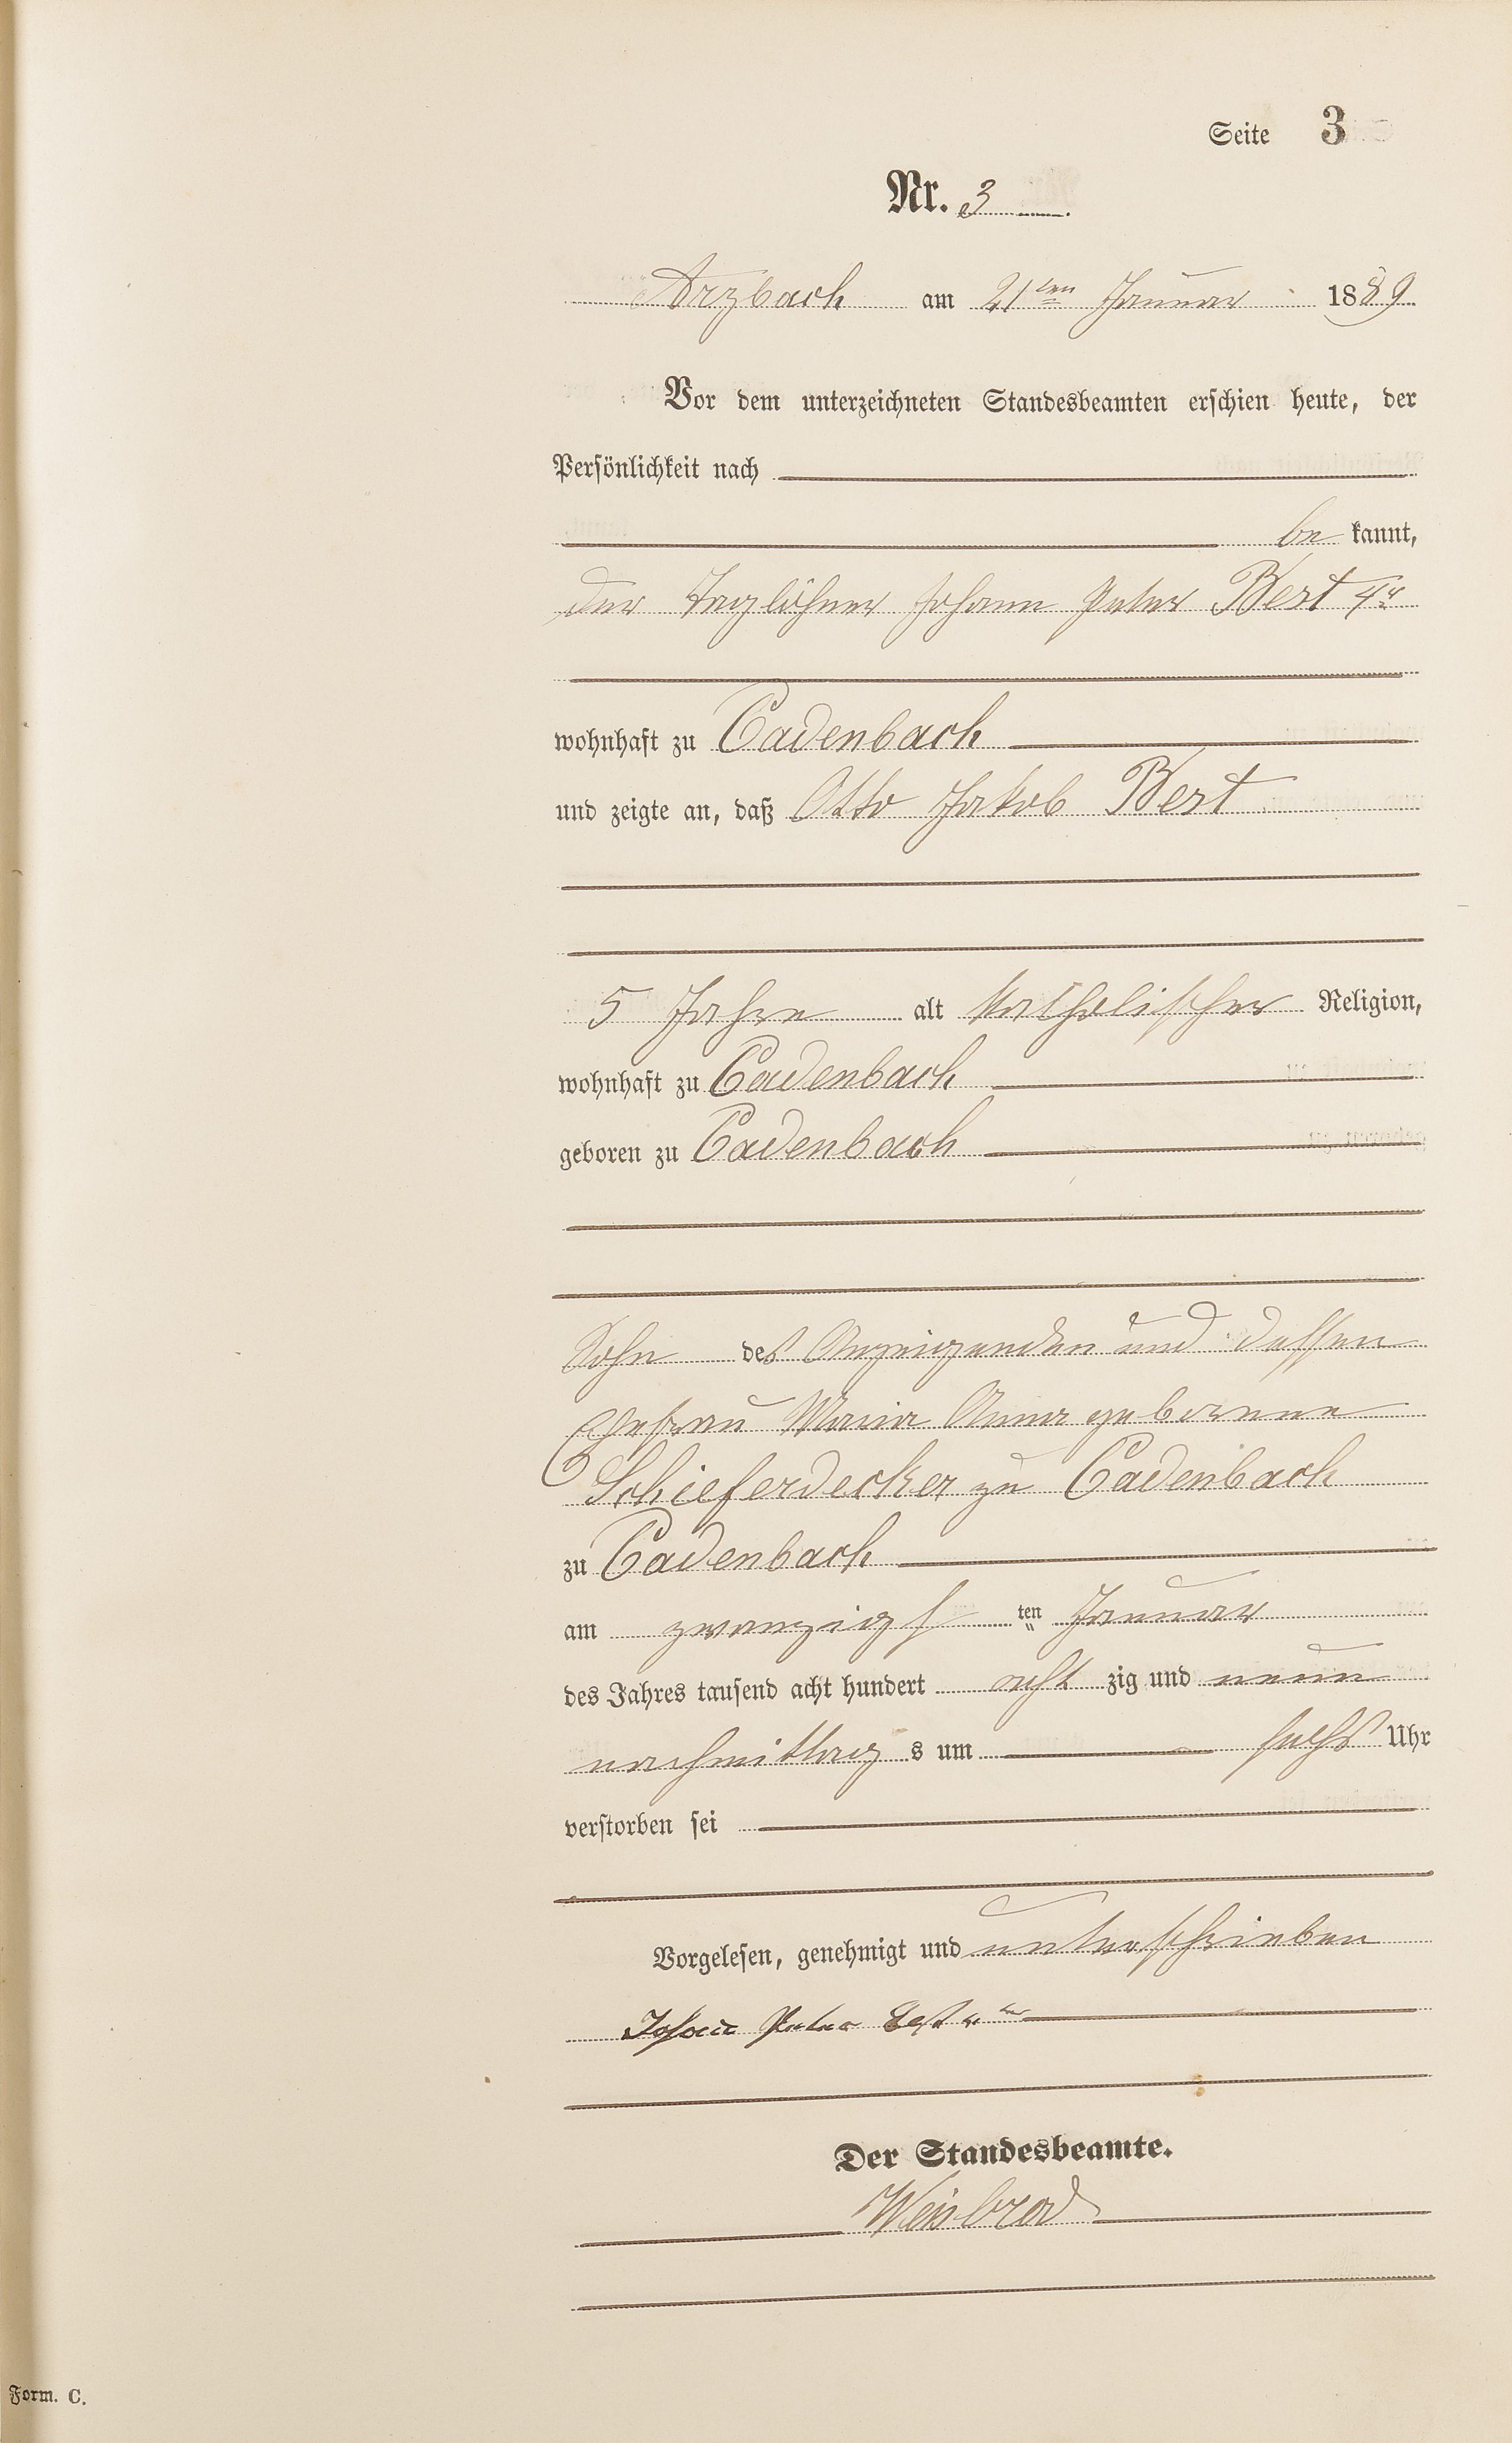 Seite 3
Nr. 3
Arzbach am 21ten Januar 1889
Vor dem unterzeichneten Standesbeamten erschien heute, der
Persönlichkeit nach
be kannt,
der Taglöhner Johann Peter Best 4r
wohnhaft zu Cadenbach
und zeigte an, daß Otto Jakob Best
5 Jahre alt katholischer Religion,
wohnhaft zu Cadenbach
geboren zu Cadenbach
Sohn des Anzeigenden und dessen
Ehefrau Maria Anna geborene
Schieferdecker zu Cadenbach
zu Cadenbach
am zwanzigs ten Januar
des Jahres tausend acht hundert acht zig und neun
nachmittag s um sechs Uhr
verstorben sei
Vorgelesen, genehmigt und unterschrieben
Johann Peter Best 4ter
Der Standesbeamte.
Weisbrod
Form. C.